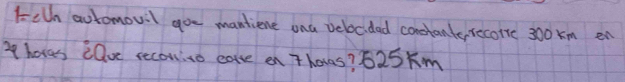 1-¿Un automovil que mantiene una velocidad conchante, recorre 300 km en
4 horas ¿Que recorrido corre en 7 horas? 525 Km